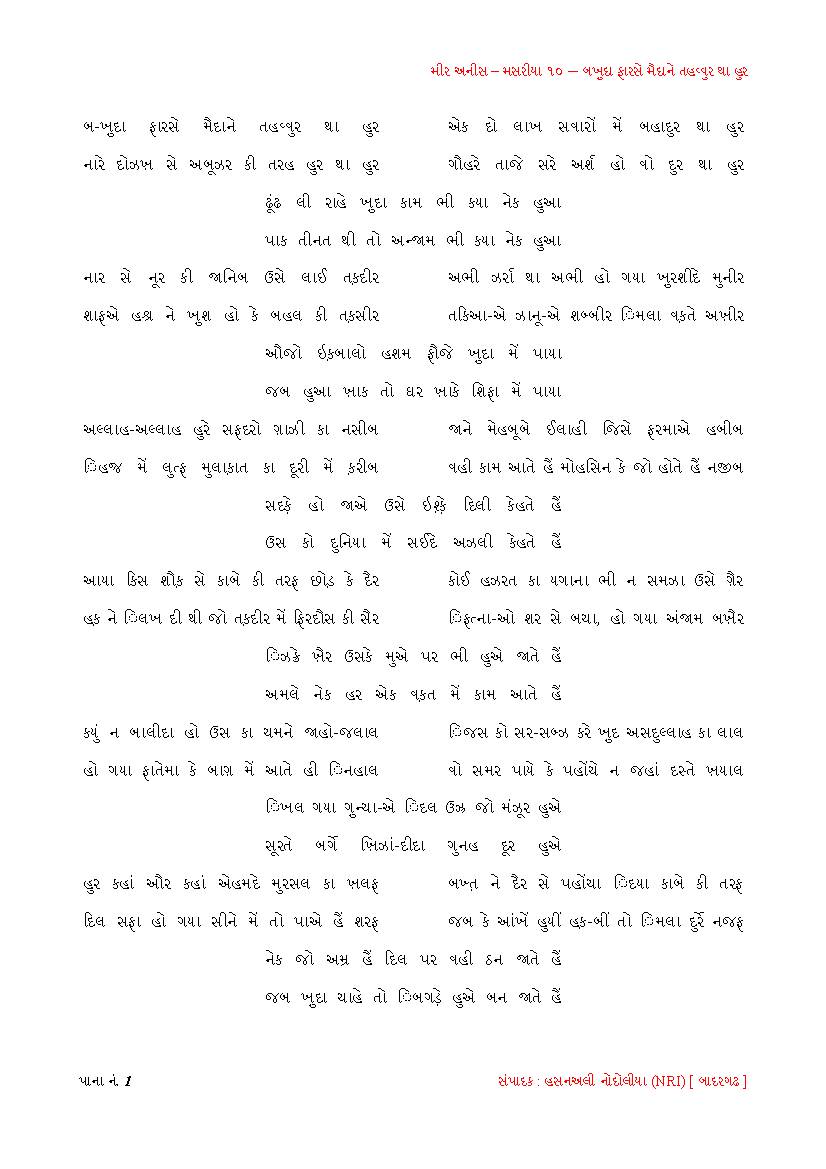 મીર અનીસ – મસરીયા ૧૦ — બખુદા ફારસે મૈદાને તહવ્વુર થા હુર
બ-ખુદા ફારસે મૈદાને તહવ્વુર થા હુર એક દો લાખ સવારોં મેં બહાદુર થા હુર
નારે દોઝખ઼ સે અબૂઝર કી તરહ હુર થા હુર ગૌહરે તાજે સરે અર્શ હો વો દુર થા હુર
ઢૂંઢ લી રાહે ખુ઼દા કામ ભી કયા નેક હુઆ
પાક તીનત થી તો અન્જામ ભી કયા નેક હુઆ
નાર સે નૂર કી જાનિબ ઉસે લાઈ તક઼દીર અભી ઝર્રા થા અભી હો ગયા ખુરશીદિ મુનીર
શાફએ હશ્ર ને ખુશ હો કે બહલ કી તક઼સીર તકિઆ-એ ઝાનૂ-એ શબ્બીર િમલા વક઼તે અખી઼ર
ઔજો ઇક઼બાલો હશમ ફૌજે ખુ઼દા મેં પાયા
જબ હુઆ ખા઼ક તો ઘર ખા઼કે શિફા મેં પાયા
અલ્લાહ-અલ્લાહ હુરે સફ઼દરો ગા઼ઝી કા નસીબ જાને મેહબૂબે ઈલાહી જિસે ફરમાએ હબીબ
િહજ મેં લુત્ફ મુલાકા઼ત કા દૂરી મેં ક઼રીબ વહી કામ આતે હૈં મોહસિન કે જો હોતે હૈં નજીબ
સદકે઼ હો જાએ ઉસે ઇશ્કે઼ દિલી કેહતે હૈં
ઉસ કો દુનિયા મેં સઈદે અઝલી કેહતે હૈં
આયા કિસ શૌક઼ સે કાબે કી તરફ છોડ઼ કે દૈર કોઈ હઝરત કા યગાના ભી ન સમઝા ઉસે ગૈ઼ર
હક઼ ને િલખ દી થી જો તક઼દીર મેં ફિરદૌસ કી સૈર િફત્ના-ઓ શર સે બચા, હો ગયા અંજામ બખૈ઼ર
િઝક્રે ખૈ઼ર ઉસકે મુએ પર ભી હુએ જાતે હૈં
અમલે નેક હર એક વક઼ત મેં કામ આતે હૈં
કયું ન બાલીદા હો ઉસ કા ચમને જાહો-જલાલ િજસ કો સર-સબ્ઝ કરે ખુ઼દ અસદુલ્લાહ કા લાલ
હો ગયા ફાતેમા કે બાગ઼ મેં આતે હી િનહાલ વો સમર પાયે કે પહોંચે ન જહાં દસ્તે ખયાલ
િખલ ગયા ગુન્ચા-એ િદલ ઉઝ્ર જો મંઝૂર હુએ
સૂરતે બર્ગે ખિ઼ઝાં-દીદા ગુનહ દૂર હુએ
હુર કહાં ઔર કહાં એહમદે મુરસલ કા ખ઼લફ઼ બખ્ત઼ ને દૈર સે પહોંચા િદયા કાબે કી તરફ
દિલ સફા હો ગયા સીને મેં તો પાએ હૈં શરફ઼ જબ કે આંખેં હુયીં હક઼-બીં તો િમલા દુર્રે નજફ઼
નેક જો અમ્ર હૈં દિલ પર વહી ઠન જાતે હૈં
જબ ખુ઼દા ચાહે તો િબગડે઼ હુએ બન જાતે હૈં
પાના નં. 1 સંપાદક : હસનઅલી નોંદોલીયા (NRI) [ બાદરગઢ ]